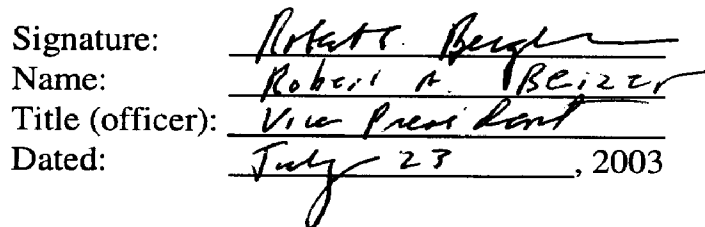 Signature:
Name: Robert A. Beizer
Title (officer): Vice President
Dated: July 23, 2003